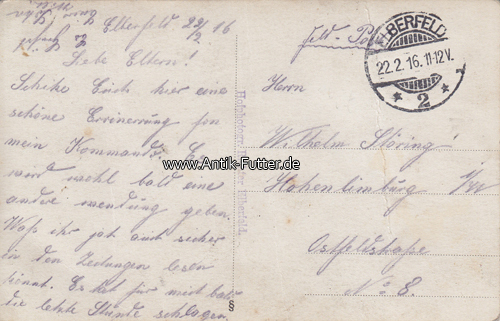 Elberfeld 22/2 16
Liebe Eltern!
Schike Euch hier eine
schöne Errinerrung fon
mein Kommando. Es
wird wohl bald eine
andre wendung geben.
Waß ihr ja auch sicher
in den Zeitungen lesen
könnt. Es hat für mich bald
die letzte Stunde schlagen.
Feld-Po
ELBERFELD
22.2.16.11-12V.
* 2 *
Herrn
Wilhelm Störing
Hohenlimburg i/W
Ostfeldstraße
No 8.
www.Antik-Futter.de
Elberfeld.
§